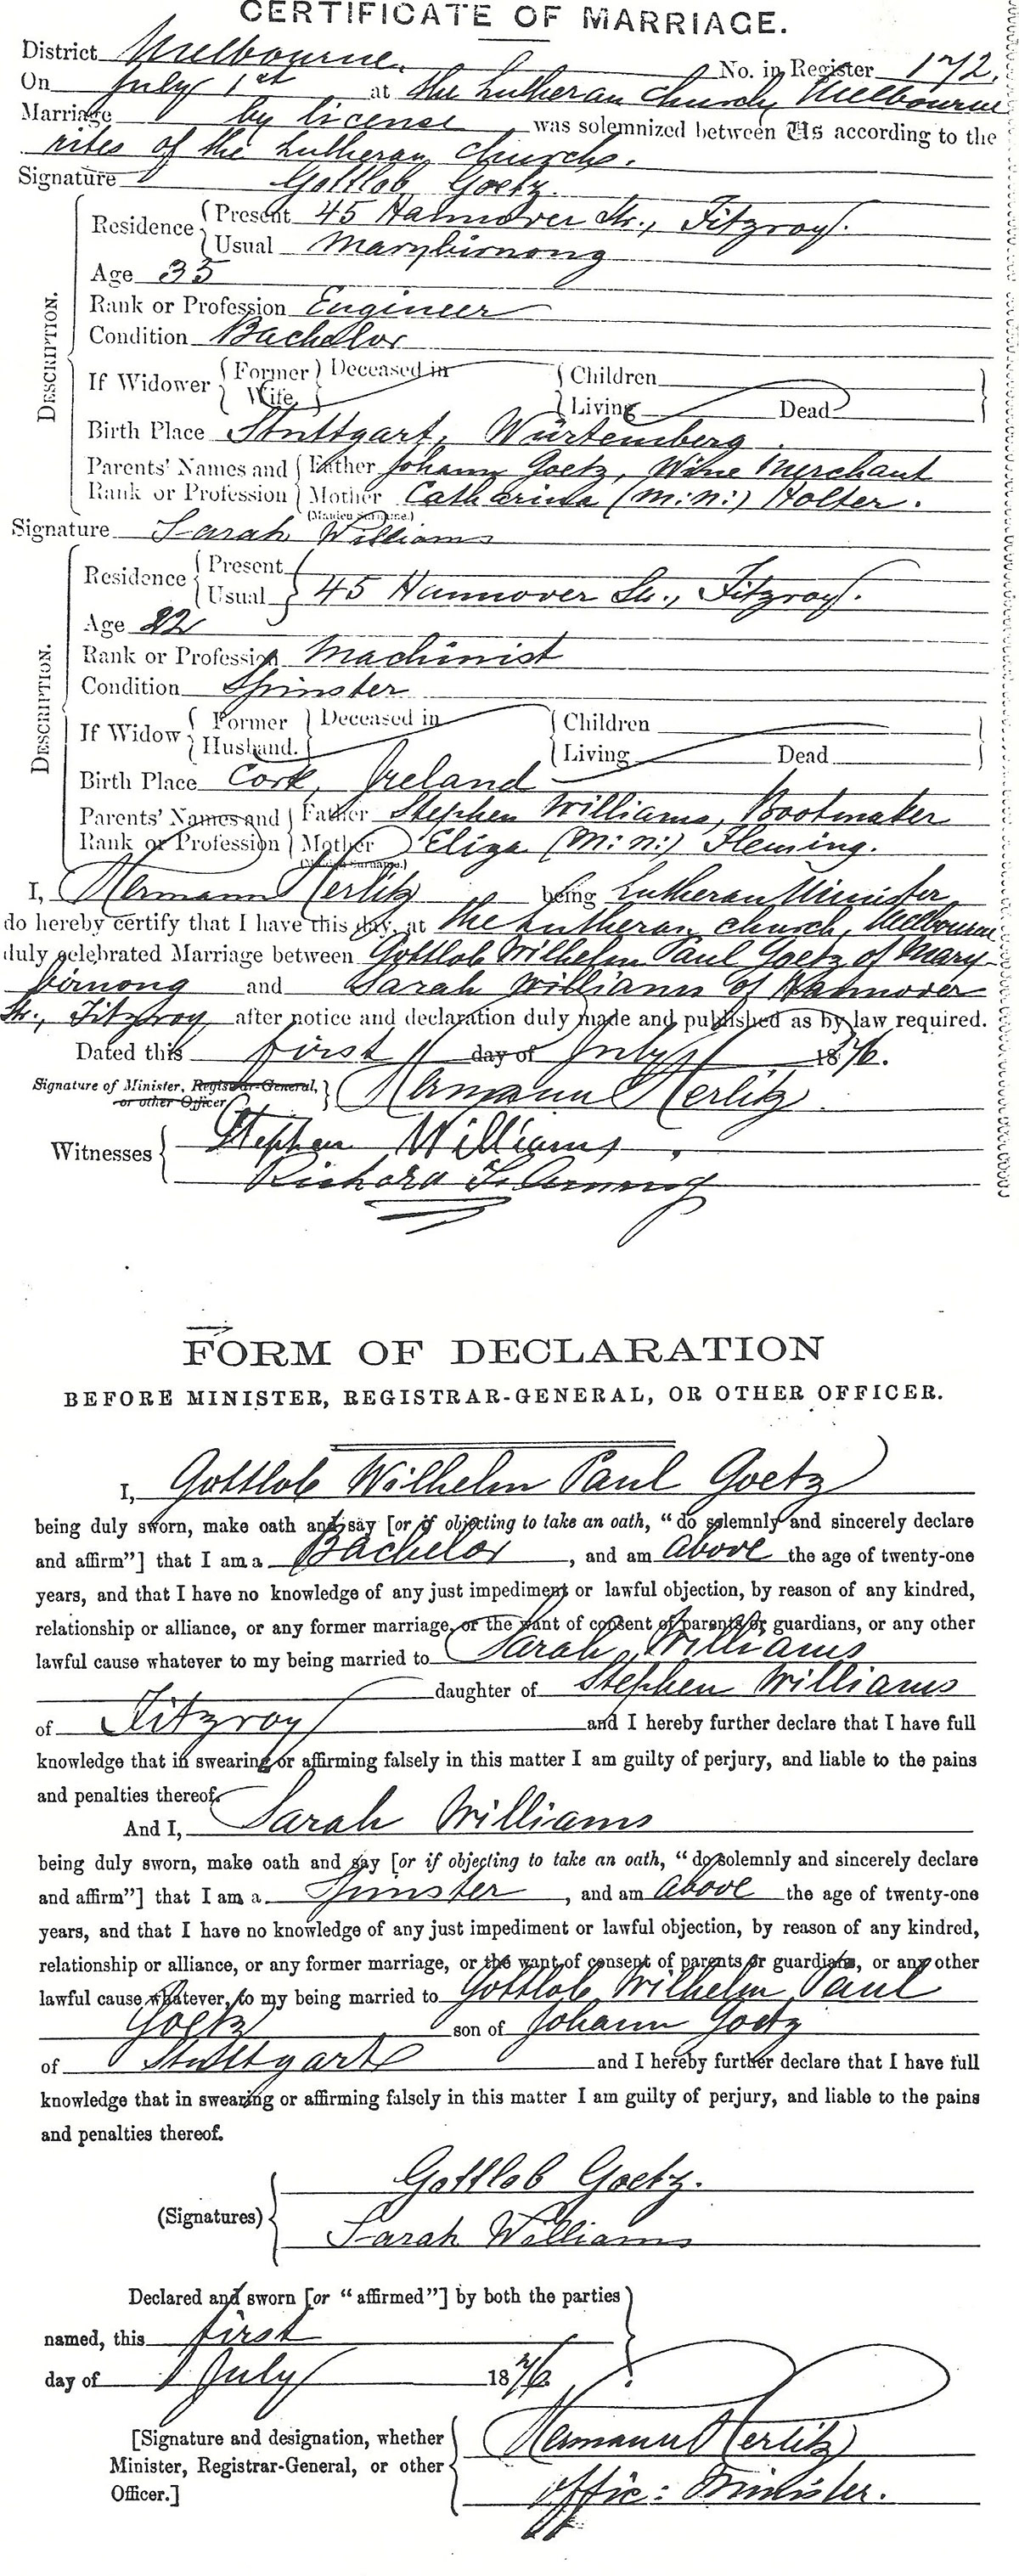 CERTIFICATE OF MARRIAGE.
District Melbourne. No. in Register 172.
On July 1st at the Lutheran Church, Melbourne
Marriage by license was solemnized between Us according to the
rites of the Lutheran Church.
Signature Gottlob Goetz.
Residence Present 45 Hannover Str., Fitzroy.
Usual Marybirnong
Age 35
Rank or Profession Engineer
Condition Bachelor
DESCRIPTION.
If Widower Former Wife Deceased in Children
Living Dead
Birth Place Stuttgart, Würtemberg.
Parents' Names and Father Johann Goetz, Wine Merchant
Rank or Profession Mother Catharina (m:n:) Holter.
(Maiden Surname.)
Signature Sarah Williams
Residence Present
Usual 45 Hannover Str., Fitzroy.
Age 22
Rank or Profession Machinist
Condition Spinster
DESCRIPTION.
If Widow Former Husband. Deceased in Children
Living Dead
Birth Place Cork, Ireland
Parents' Names and Father Stephen Williams, Bootmaker
Rank or Profession Mother Eliza (m:n:) Fleming.
(Maiden Surname.)
I, Hermann Herlitz being Lutheran Minister
do hereby certify that I have this day, at the Lutheran Church, Melbourne
duly celebrated Marriage between Gottlob Wilhelm Paul Goetz of Mary-
birnong and Sarah Williams of Hannover
Str., Fitzroy, after notice and declaration duly made and published as by law required.
Dated this first day of July 1876.
Signature of Minister, Registrar-General,
or other Officer Hermann Herlitz
Witnesses Stephen Williams.
Richard Flemming
FORM OF DECLARATION
BEFORE MINISTER, REGISTRAR-GENERAL, OR OTHER OFFICER.
I, Gottlob Wilhelm Paul Goetz
being duly sworn, make oath and say [or if objecting to take an oath, "do solemnly and sincerely declare
and affirm"] that I am a Bachelor, and am above the age of twenty-one
years, and that I have no knowledge of any just impediment or lawful objection, by reason of any kindred,
relationship or alliance, or any former marriage, or the want of consent of parents or guardians, or any other
lawful cause whatever to my being married to Sarah Williams
daughter of Stephen Williams
of Fitzroy and I hereby further declare that I have full
knowledge that in swearing or affirming falsely in this matter I am guilty of perjury, and liable to the pains
and penalties thereof.
And I, Sarah Williams
being duly sworn, make oath and say [or if objecting to take an oath, "do solemnly and sincerely declare
and affirm"] that I am a Spinster, and am above the age of twenty-one
years, and that I have no knowledge of any just impediment or lawful objection, by reason of any kindred,
relationship or alliance, or any former marriage, or the want of consent of parents or guardians, or any other
lawful cause whatever, to my being married to Gottlob Wilhelm Paul
Goetz son of Johann Goetz
of Stuttgart and I hereby further declare that I have full
knowledge that in swearing or affirming falsely in this matter I am guilty of perjury, and liable to the pains
and penalties thereof.
(Signatures) Gottlob Goetz.
Sarah Williams
Declared and sworn [or "affirmed"] by both the parties
named, this first
day of July 1876.
[Signature and designation, whether
Minister, Registrar-General, or other
Officer.]
Hermann Herlitz
offic: Minister.